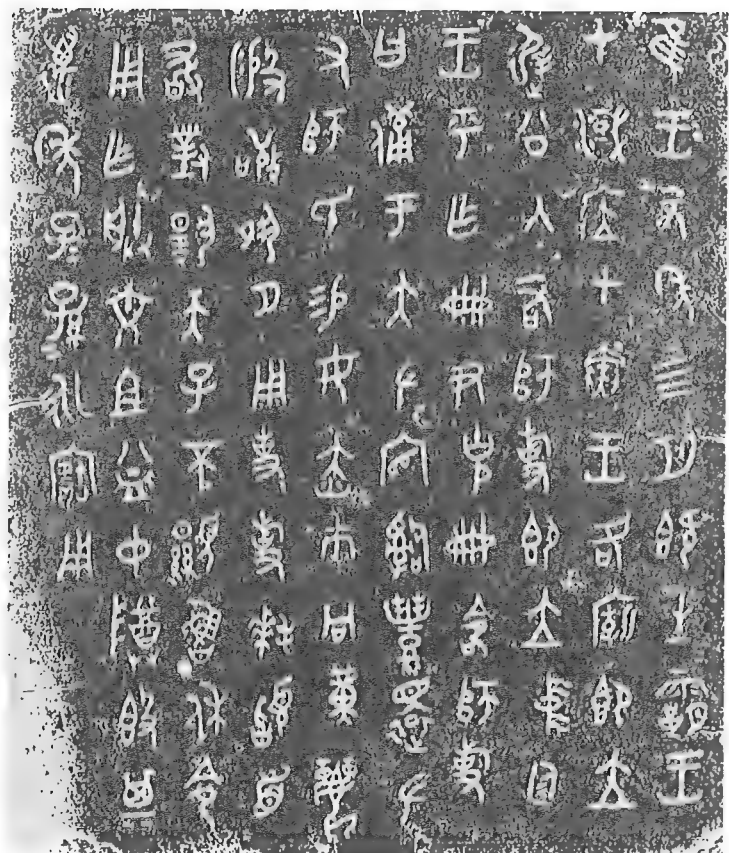 隹王元年四月既生霸王
才淢应甲寅王各廟即立
遟公入右師㫃即立中廷
王乎乍冊尹克冊命師㫃
曰備于大左官𤔲豐還左
又師氏易女赤巿冋黃麗
般敬夙夕用事㫃拜𩒨首
敢對揚天子不顯魯休命
用乍朕文且益中尊𣪘其
萬年子=孫=永寶用